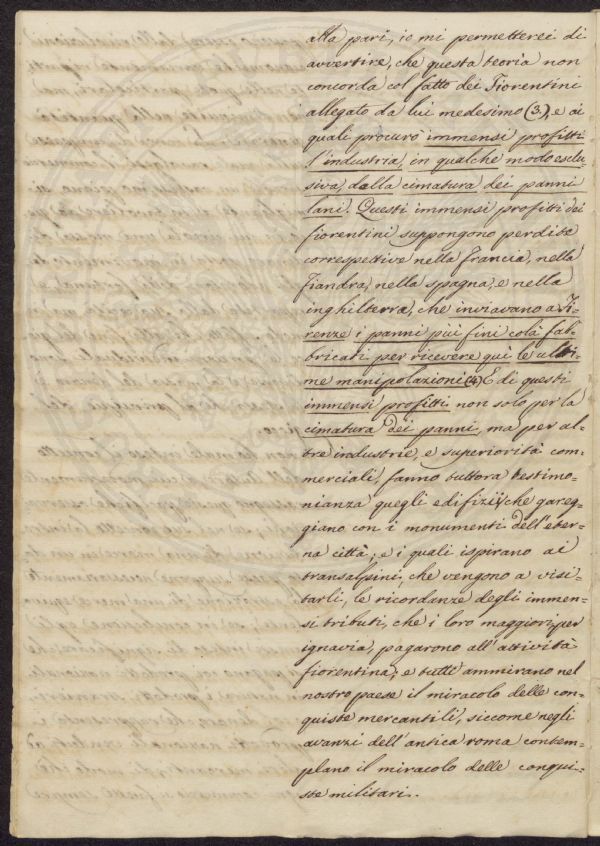 alla pari, io mi permetterei di
avvertire, che questa teoria non
concorda col fatto dei Fiorentini
allegato da lui medesimo (3.), e ai
quali procurò immensi profitti
l'industria, in qualche modo esclu-
siva, dalla cimatura dei panni
lani. Questi immensi profitti dei
fiorentini suppongono perdite
correspettive nella Francia, nella
Fiandra, nella Spagna, e nella
inghilterra, che inviavano a Fi-
renze i panni più fini colà fab-
bricati per ricevere quì le ulti-
me manipolazioni (4.) E di questi
immensi profitti non solo per la
cimatura dei panni, ma per al-
tre industrie, e superiorità com-
merciali, fanno tuttora testimo-
nianza quegli edifizii che gareg-
giano con i monumenti dell'eter-
na città; e i quali ispirano ai
transalpini, che vengono a visi-
tarli, le ricordanze degli immen-
si tributi, che i loro maggiori, per
ignavia, pagarono all'attività
fiorentina; e tutti ammirano nel
nostro paese il miracolo delle con-
quiste mercantili, siccome negli
avanzi dell'antica roma contem-
plano il miracolo delle conqui-
ste militari.